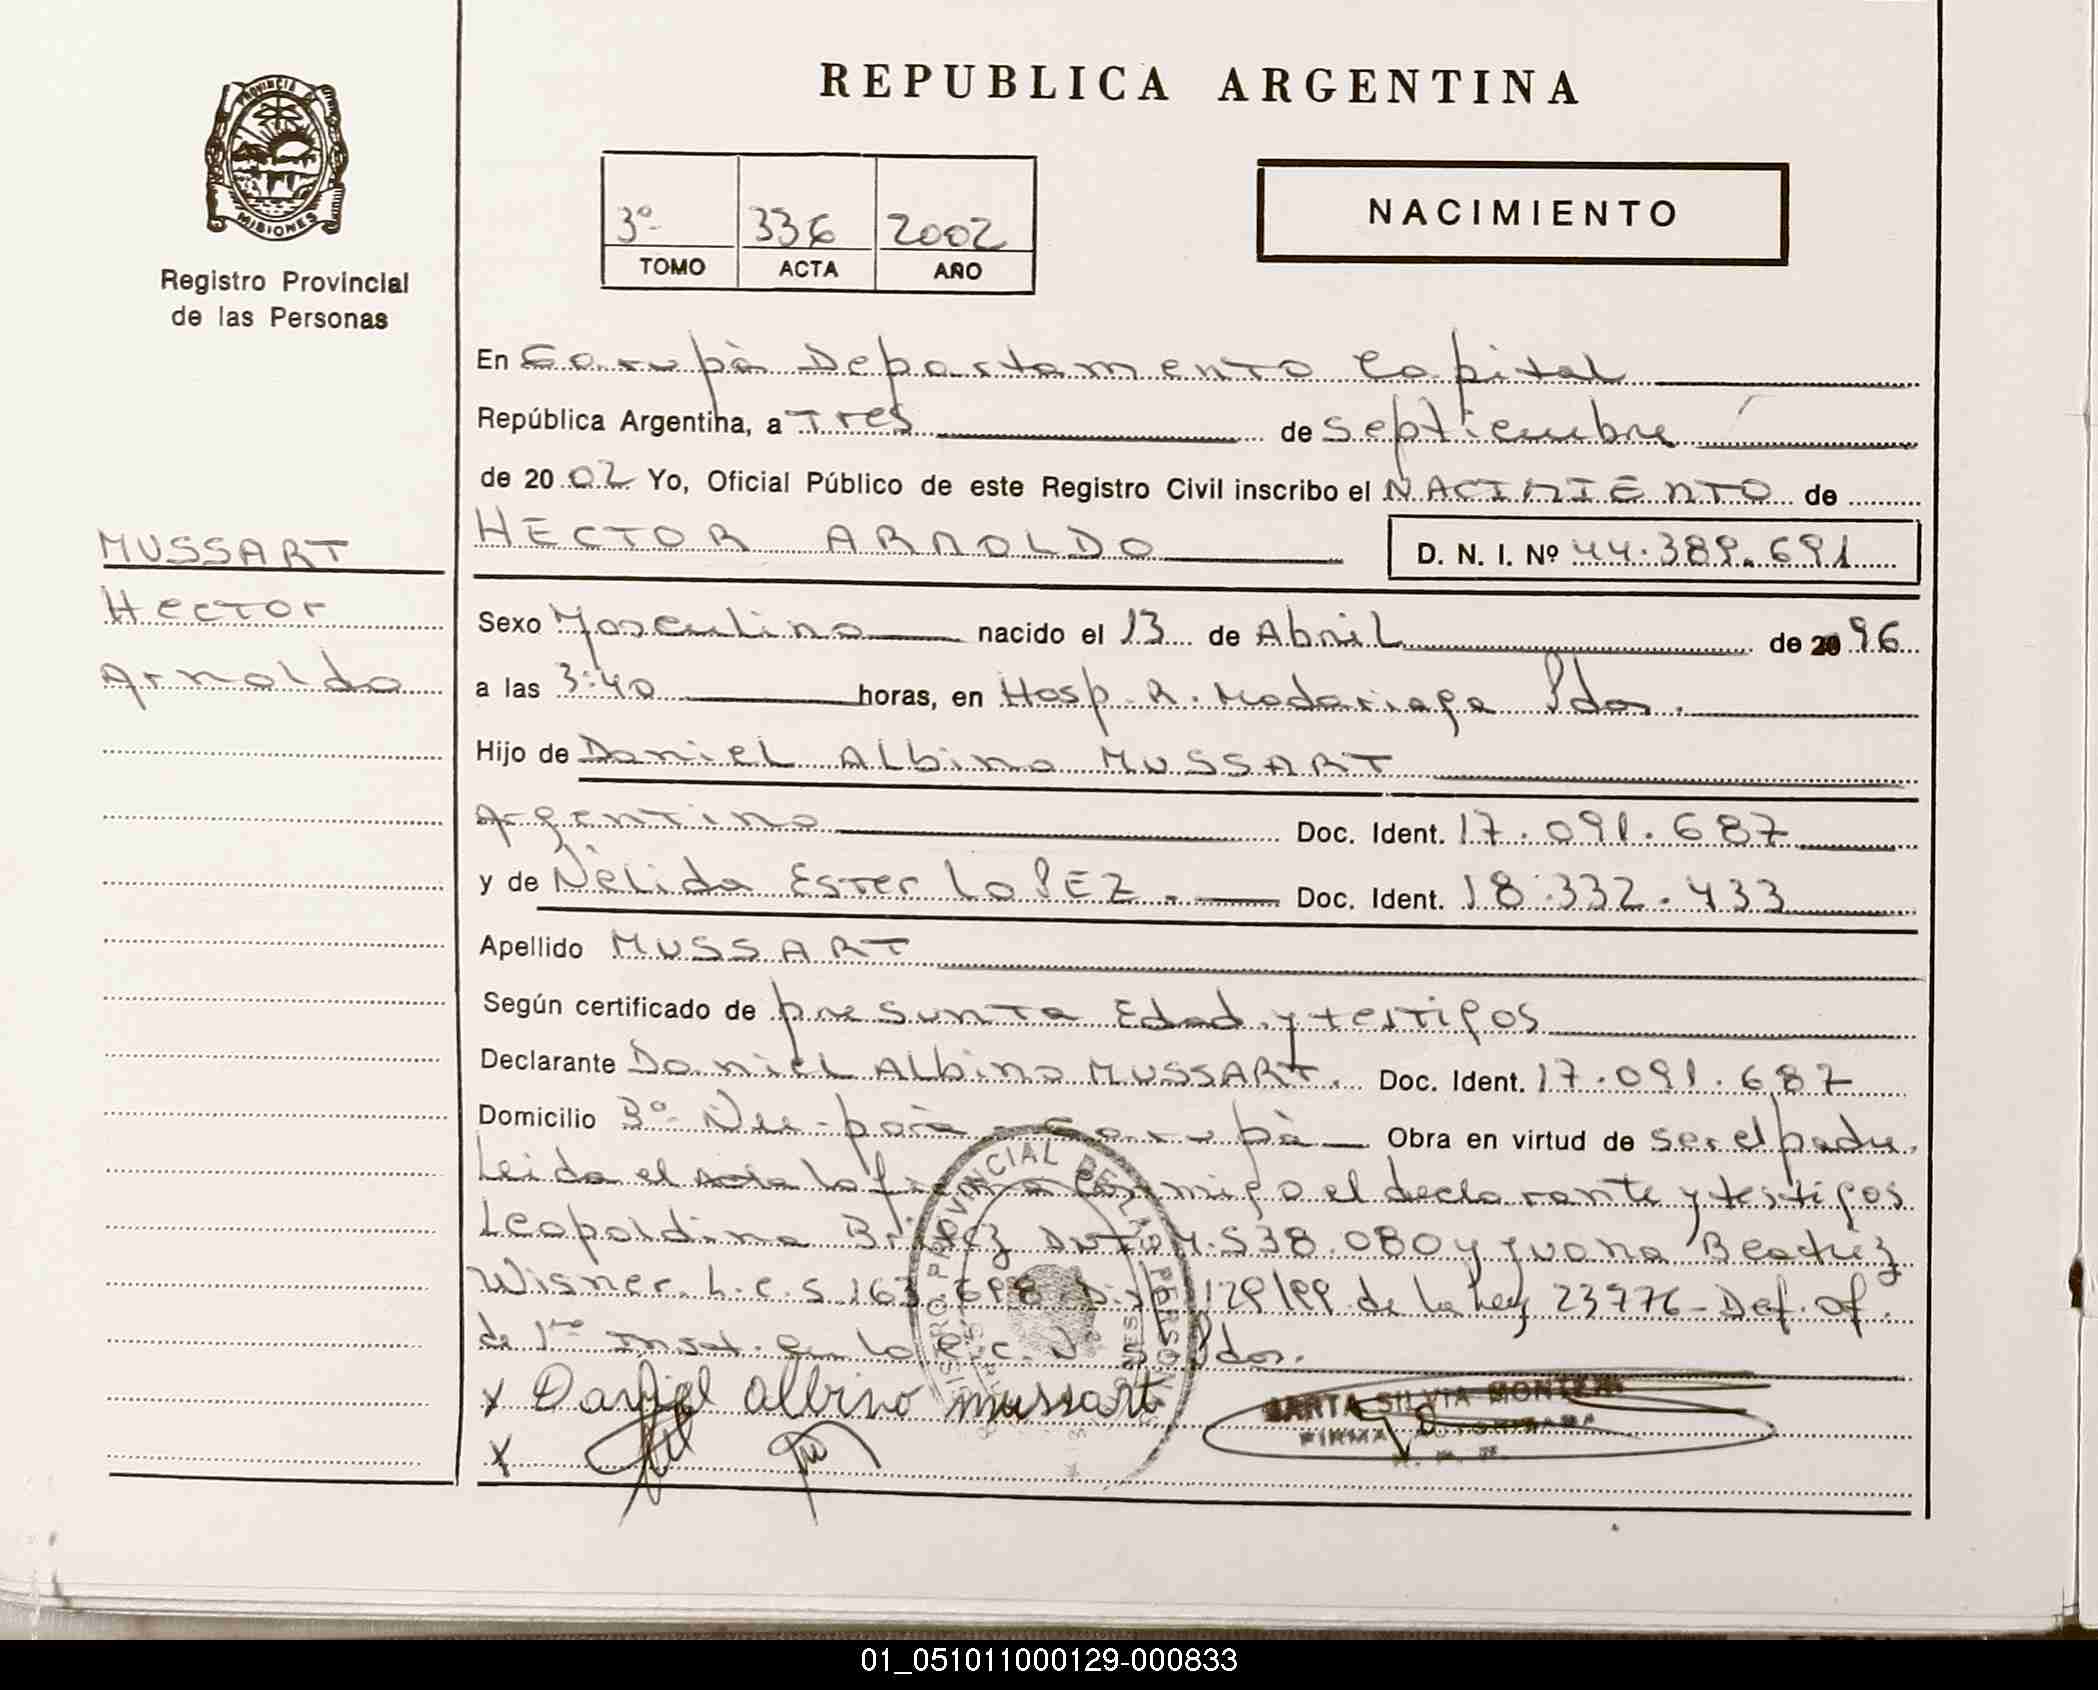 REPUBLICA ARGENTINA
PROVINCIA DE
MISIONES
Registro Provincial
de las Personas
3º 336 2002
TOMO ACTA AÑO
NACIMIENTO
En Garupà Departamento Capital
República Argentina, a Tres de Septiembre
de 2002 Yo, Oficial Público de este Registro Civil inscribo el NACIMIENTO de
HECTOR ARNOLDO D. N. I. Nº 44.389.691
MUSSART
Hector
Arnoldo
Sexo Masculino nacido el 13 de Abril de 20 96
a las 3:40 horas, en Hosp. R. Madariaga Pdas.
Hijo de Daniel Albino MUSSART
Argentino Doc. Ident. 17.091.687
y de Nèlida Ester LoPEZ.- Doc. Ident. 18.332.433
Apellido MUSSART
Según certificado de presunta Edad y testigos
Declarante Daniel Albino MUSSART. Doc. Ident. 17.091.687
Domicilio 3º Ñu-porà - Garupà Obra en virtud de ser el padre.
Leida el acta la firma conmigo el declarante y testigos
Leopoldina Britez 538.080 y Juana Beatriz
Wisner L.C. 5.163.698 129/99 de la Ley 23776- Def. of.
de 1ra Inst. en lo Pdas.
x Daniel albino mussart
x
REGISTRO PROVINCIAL DE LAS PERSONAS
MISIONES
MARTA SILVIA
FIRMA AUTORIZADA
01_051011000129-000833